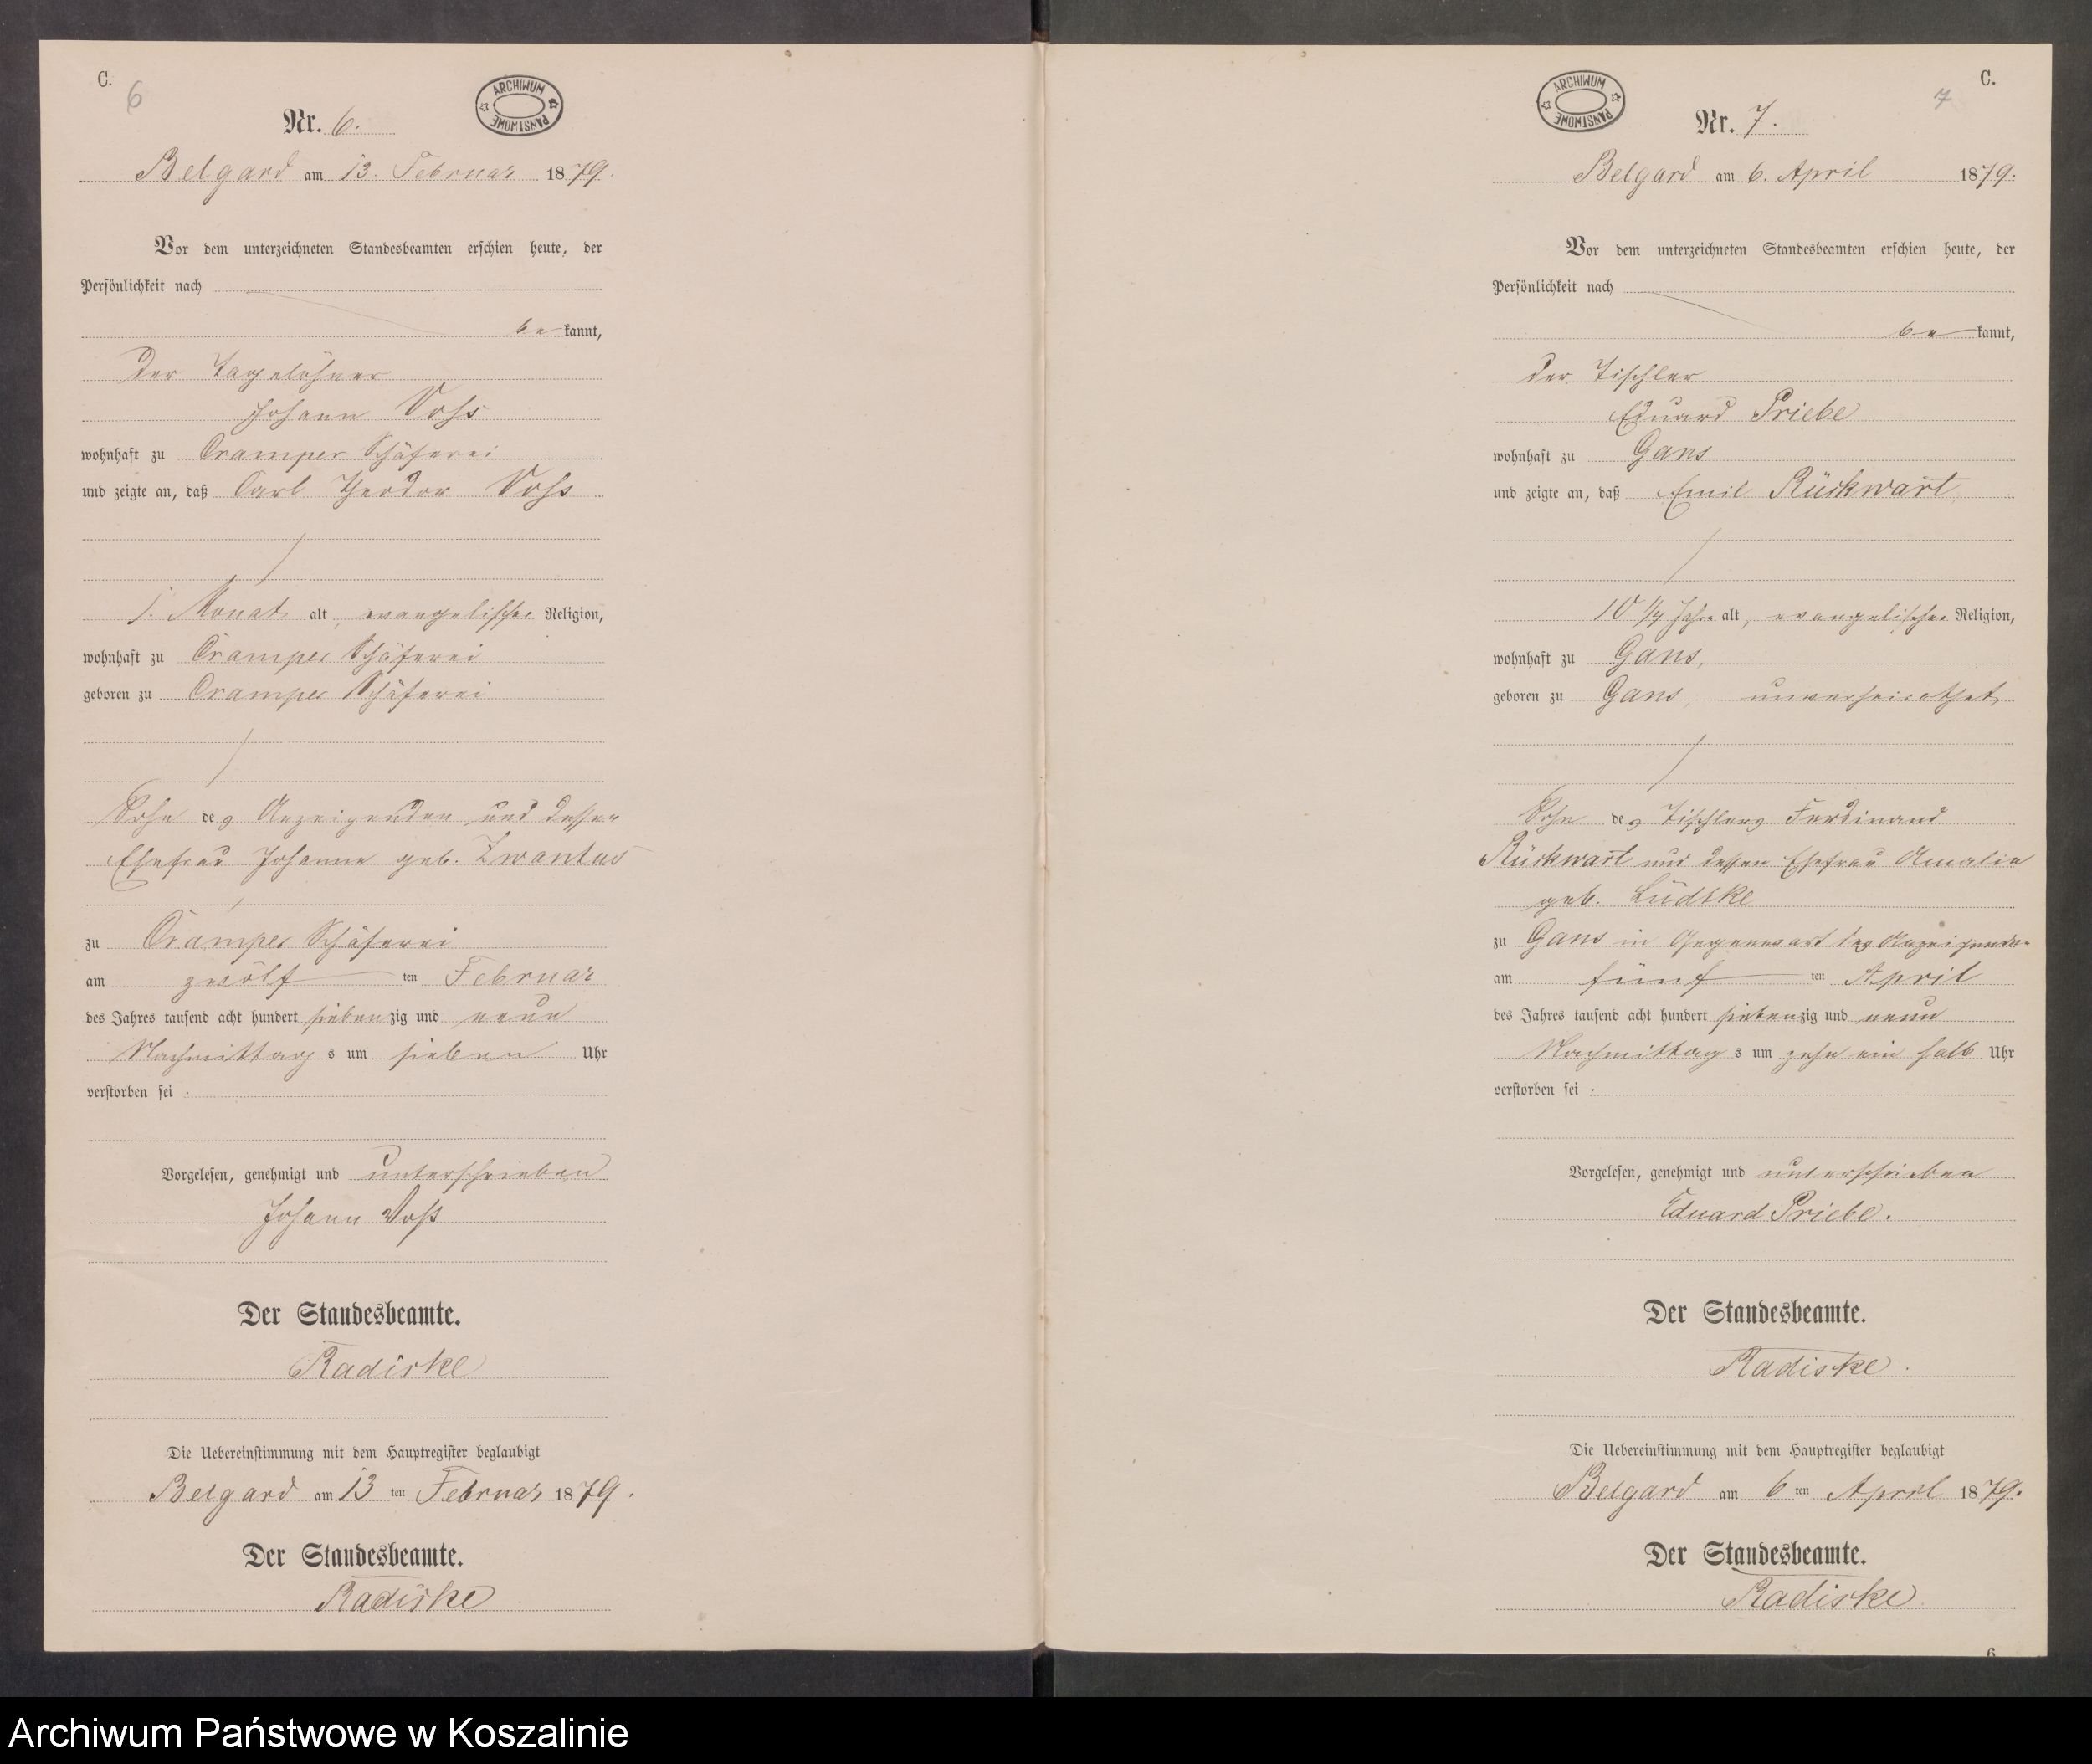 C.
6
Nr. 6.
ARCHIWUM PAŃSTWOWE
Belgard am 13. Februar 1879.
Vor dem unterzeichneten Standesbeamten erschien heute, der
Persönlichkeit nach
bekannt,
der Tagelöhner
Johann Voss
wohnhaft zu Cramper Schäferei
und zeigte an, daß Carl Theodor Voss
1. Monat alt, evangelischer Religion,
wohnhaft zu Cramper Schäferei
geboren zu Cramper Schäferei
Sohn des Anzeigenden und dessen
Ehefrau Johanne geb.
zu Cramper Schäferei
am zwölf ten Februar
des Jahres tausend acht hundert siebenzig und neun
Nachmittags um sieben Uhr
verstorben sei.
Vorgelesen, genehmigt und unterschrieben
Johann Voß
Der Standesbeamte.
Radiske
Die Uebereinstimmung mit dem Hauptregister beglaubigt
Belgard am 13 ten Februar 1879.
Der Standesbeamte.
Radiske
C.
7
ARCHIWUM PAŃSTWOWE
Nr. 7.
Belgard am 6. April 1879.
Vor dem unterzeichneten Standesbeamten erschien heute, der
Persönlichkeit nach
bekannt,
der Tischler
Eduard Priebe
wohnhaft zu Gans
und zeigte an, daß Emil Rückwart
10 1/4 Jahre alt, evangelischer Religion,
wohnhaft zu Gans,
geboren zu Gans, unverheirathet
Sohn des Tischlers Ferdinand
Rückwart und dessen Ehefrau Amalie
geb. Lüdtke
zu Gans in Gegenwart des Anzeigenden
am fünf ten April
des Jahres tausend acht hundert siebenzig und neun
Nachmittags um zehn ein halb Uhr
verstorben sei.
Vorgelesen, genehmigt und unterschrieben
Eduard Priebe.
Der Standesbeamte.
Radiske.
Die Uebereinstimmung mit dem Hauptregister beglaubigt
Belgard am 6 ten April 1879.
Der Standesbeamte.
Radiske
6
Archiwum Państwowe w Koszalinie